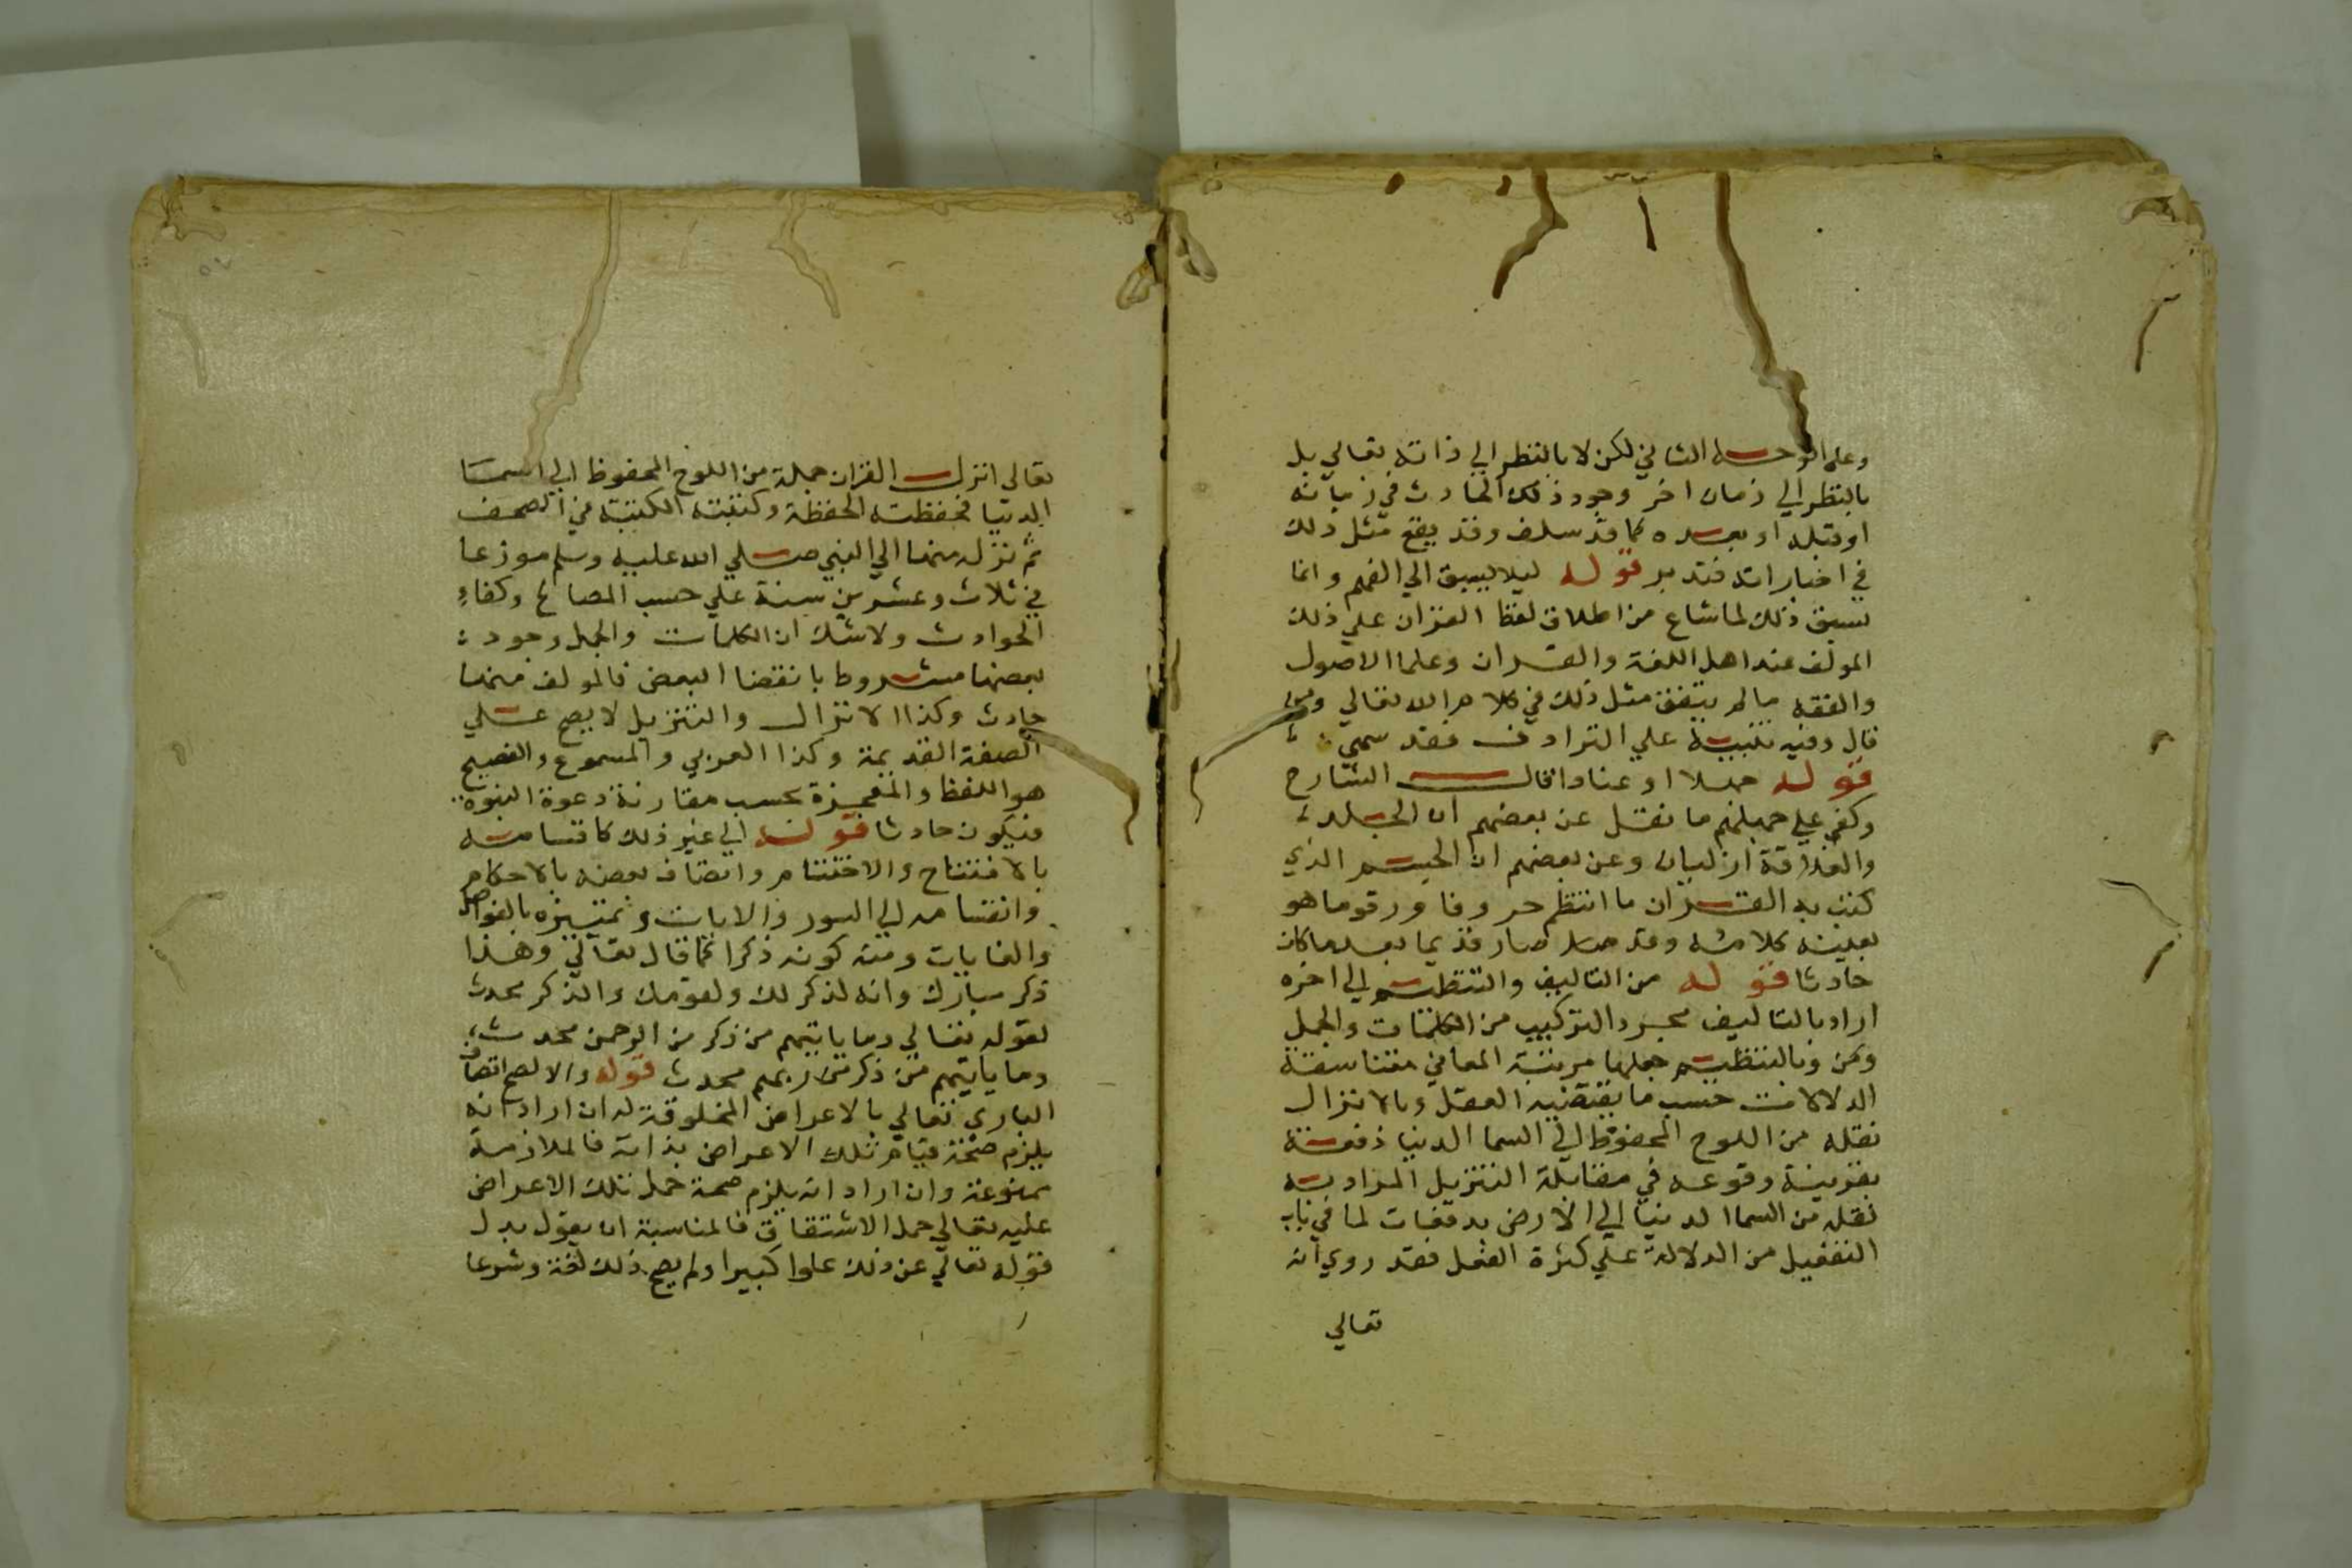 وعلى الوجه الثاني لكن لا بالنظر الي ذاته تعالي بل
بالنظر الي زمان اخر وجود ذلك الحادث في زمانه
او قبله او بعده كما قد سلف وقد يقع مثل ذلك
في اخباراته فتدبر قوله ليلا يسبق الي الفهم وانما
يسبق ذلك لما شاع من اطلاق لفظ القران علي ذلك
المولف عند اهل اللغة والقران وعلما الاصول
والفقه مالم يتفق مثل ذلك في كلام الله تعالي ومن
قال وفيه تنبيه علي الترادف فقد سمي
قوله جهلا او عنادا قال الشارح
وكفي علي جهلهم ما نقل عن بعضهم ان الجلد
والغلاف ازليان وعن بعضهم ان الجسم الذي
كتب به القران ما انتظم حروفا ورقوما هو
بعينه كلامه وقد صار قديما بعد ما كان
حادثا قوله من التاليف والتنظيم الي اخره
اراد بالتاليف مجرد التركيب من الكلمات والجمل
ومن وبالتنظيم جعلها مرتبة المعاني متناسقة
الدلالات حسب ما يقتضيه العقل وبالانزال
نقله من اللوح المحفوظ الي السما الدنيا دفعة
بقرينة وقوعه في مقابلة التنزيل المراد به
نقله من السما الدنيا الي الارض بدفعات لما في باب
التفعيل من الدلالة علي كثرة الفعل فقد روي انه
تعالي
تعالي انزل القران جملة من اللوح المحفوظ الي السما
الدنيا فحفظته الحفظة وكتبته الكتبة في الصحف
ثم نزل منها الي النبي صلي الله عليه وسلم موزعا
في ثلاث وعشرين سنة علي حسب المصالح وكفاء
الحوادث ولا شك ان الكلمات والجمل وجود
بعضها مشروط بانقضا البعض فالمولف منها
حادث وكذا الانزال والتنزيل لا يصح علي
الصفة القديمة وكذا العربي والمسموع والفصيح
هو اللفظ والمعجزة بحسب مقارنة دعوة النبوة
فيكون حادثا قوله الي غير ذلك كاتسامه
بالافتتاح والاختتام واتصاف بعضه بالاحكام
وانقسامه الي السور والايات وتميزه بالفواصل
والغايات ومنه كونه ذكرا كما قال تعالي وهذا
ذكر مبارك وانه لذكر لك ولقومك والذكر محدث
لقوله تعالي وما ياتيهم من ذكر من الرحمن محدث
وما ياتيهم من ذكر من ربهم محدث قوله والا لصح اتصاف
الباري تعالي بالاعراض المخلوقة له ان اراد انه
يلزم صحة قيام تلك الاعراض بذاته فالملازمة
ممنوعة وان اراد انه يلزم صحة حمل تلك الاعراض
عليه تعالي حمل الاشتقاق فالمناسبة ان يقول بدل
قوله تعالي عن ذلك علوا كبيرا ولم يصح ذلك لغة وشرعا